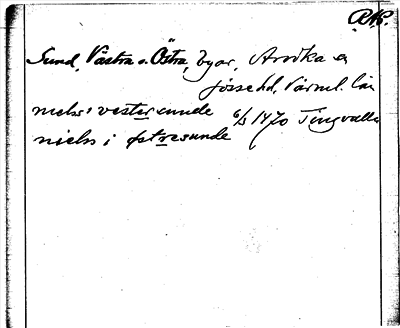 RAP.
Sund, Västra o. Östra, byar, Arvika sn
Jösse hd, Värml. län
niels i vestersunde 6/3 1470 Tingvalla
niels i østresunde